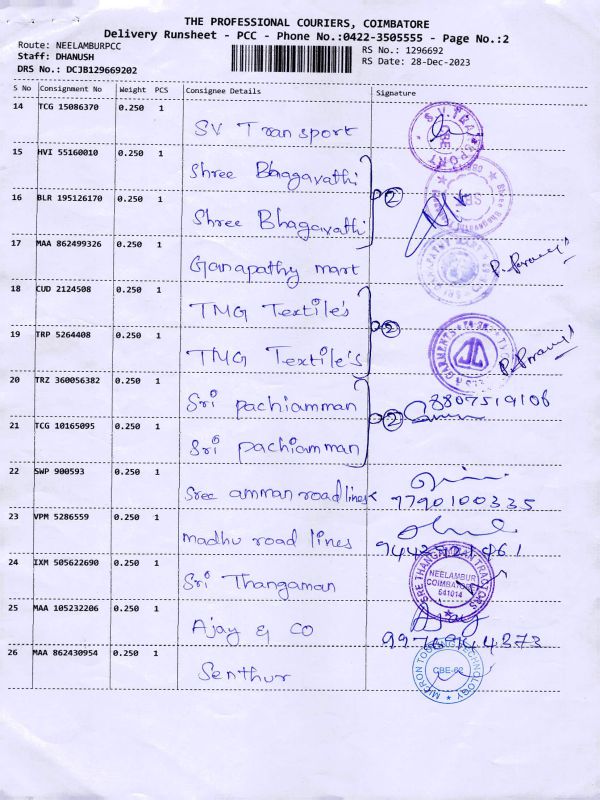 THE PROFESSIONAL COURIERS, COIMBATORE
Delivery Runsheet - PCC - Phone No.:0422-3505555 - Page No.:2
Route: NEELAMBURPCC RS No.: 1296692
Staff: DHANUSH RS Date: 28-Dec-2023
DRS No.: DCJB129669202
S No Consignment No Weight PCS Consignee Details Signature
14 TCG 15086370 0.250 1
SV Transport
15 HVI 55160010 0.250 1
Shree Bhagavathi
16 BLR 195126170 0.250 1 2
Shree Bhagavathi
17 MAA 862499326 0.250 1
Ganapathy mart
18 CUD 2124508 0.250 1
TMG Textile's
19 TRP 5264408 0.250 1 2
TMG Textile's
20 TRZ 360056382 0.250 1
Sri pachiamman 8807519106
21 TCG 10165095 0.250 1 2
Sri pachiamman
22 SWP 900593 0.250 1
Sree amman road lines 9790100335
23 VPM 5286559 0.250 1
madhu road lines
24 IXM 505622690 0.250 1
NEELAMBUR
COIMBATORE
641014
Sri Thangaman
25 MAA 105232206 0.250 1
Ajay & CO
26 MAA 862430954 0.250 1
CBE-62
Senthur